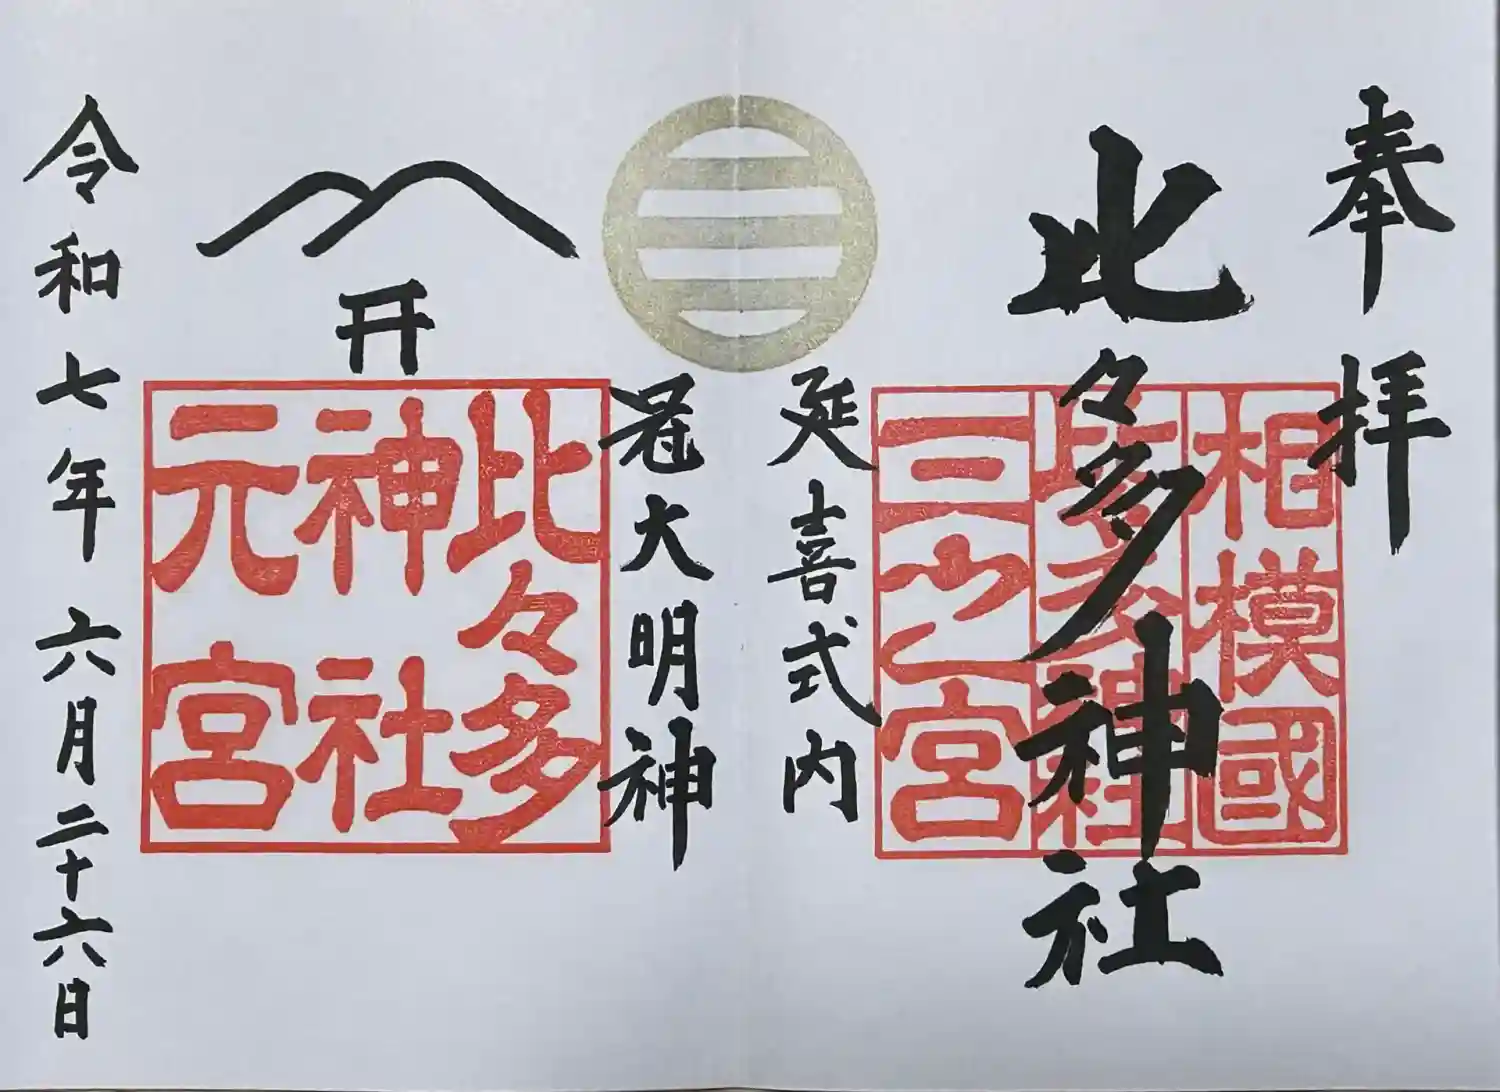 奉拝
比々多神社
相模國
三之宮
延喜式内
冠大明神
比々多
神社
元宮
令和七年六月二十六日